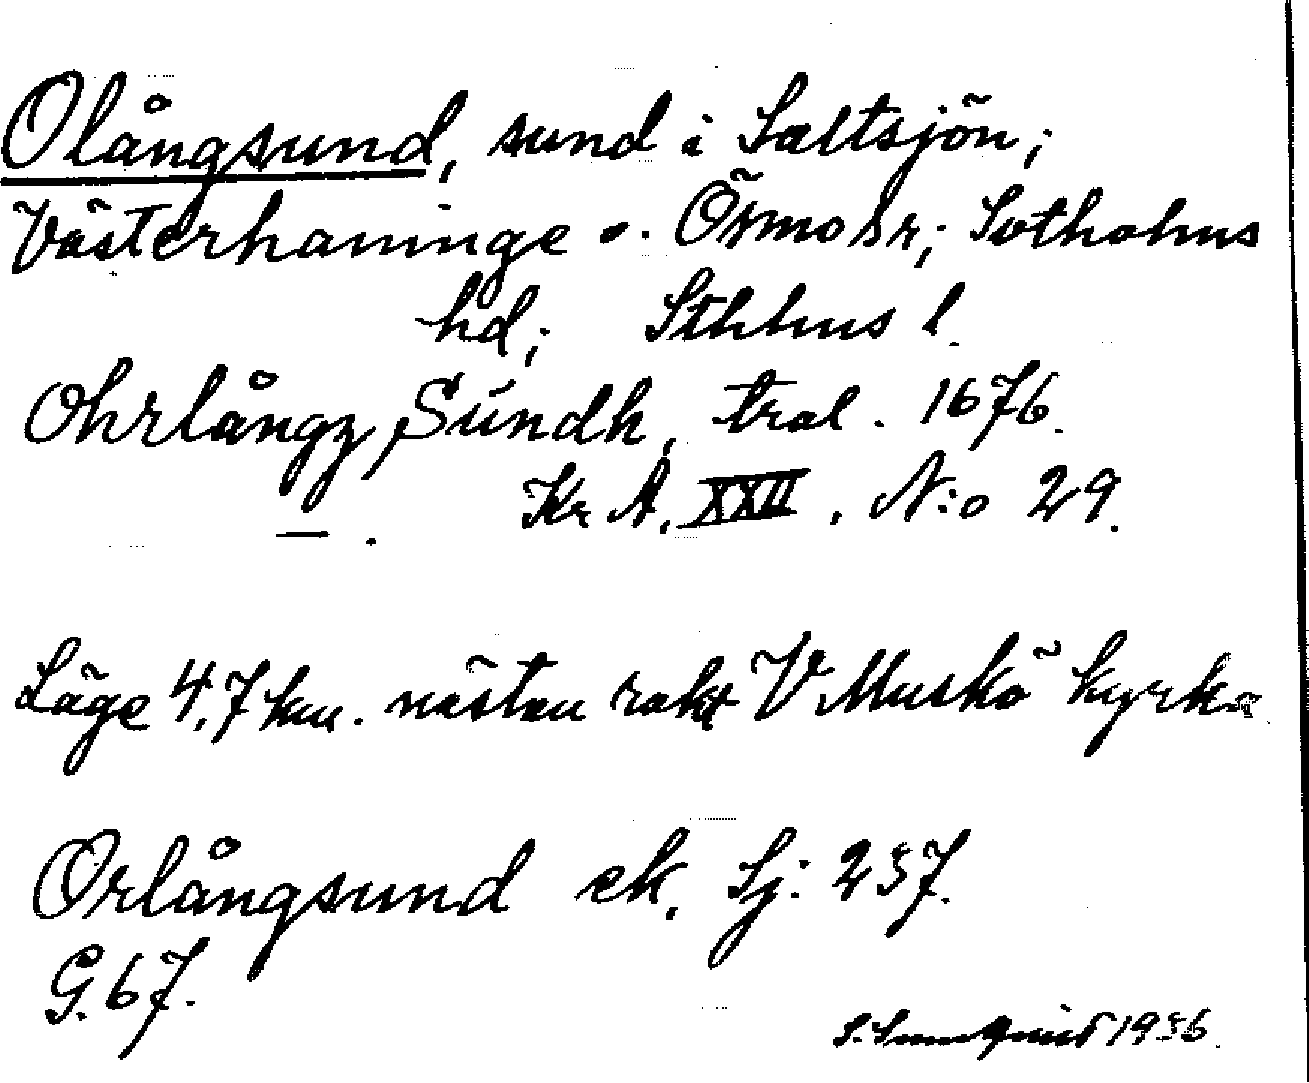 Olångsund, sund i Saltsjön;
Västerhaninge o. Ösmo sr; Sotholms
hd; Sthlms l.
Ohrlångz Sundh, tral. 1676.
Kr A, XXII, N:o 29.
— .
Läge 4,7 km. nästan rakt V Muskö kyrka
Orlångsund ek. Sj: 237.
G. 67.
1936.